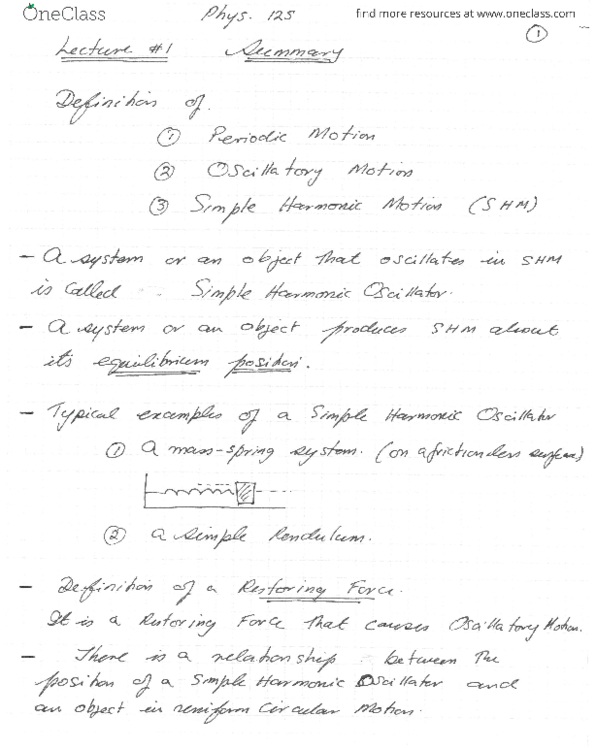 OneClass
Phys. 125
find more resources at www.oneclass.com
1
Lecture #1 Summary
Definition of.
① Periodic Motion
② Oscillatory Motion
③ Simple Harmonic Motion (SHM)
- A system or an object that oscillates in SHM
is called Simple Harmonic Oscillator.
- A system or an object produces SHM about
its equilibrium position.
- Typical examples of a Simple Harmonic Oscillator
① A mass-spring system. (on a frictionless surface)
② a simple Pendulum.
- Definition of a Restoring Force.
It is a Restoring Force that causes Oscillatory Motion.
- There is a relationship between The
position of a Simple Harmonic Oscillator and
an object in uniform Circular Motion.